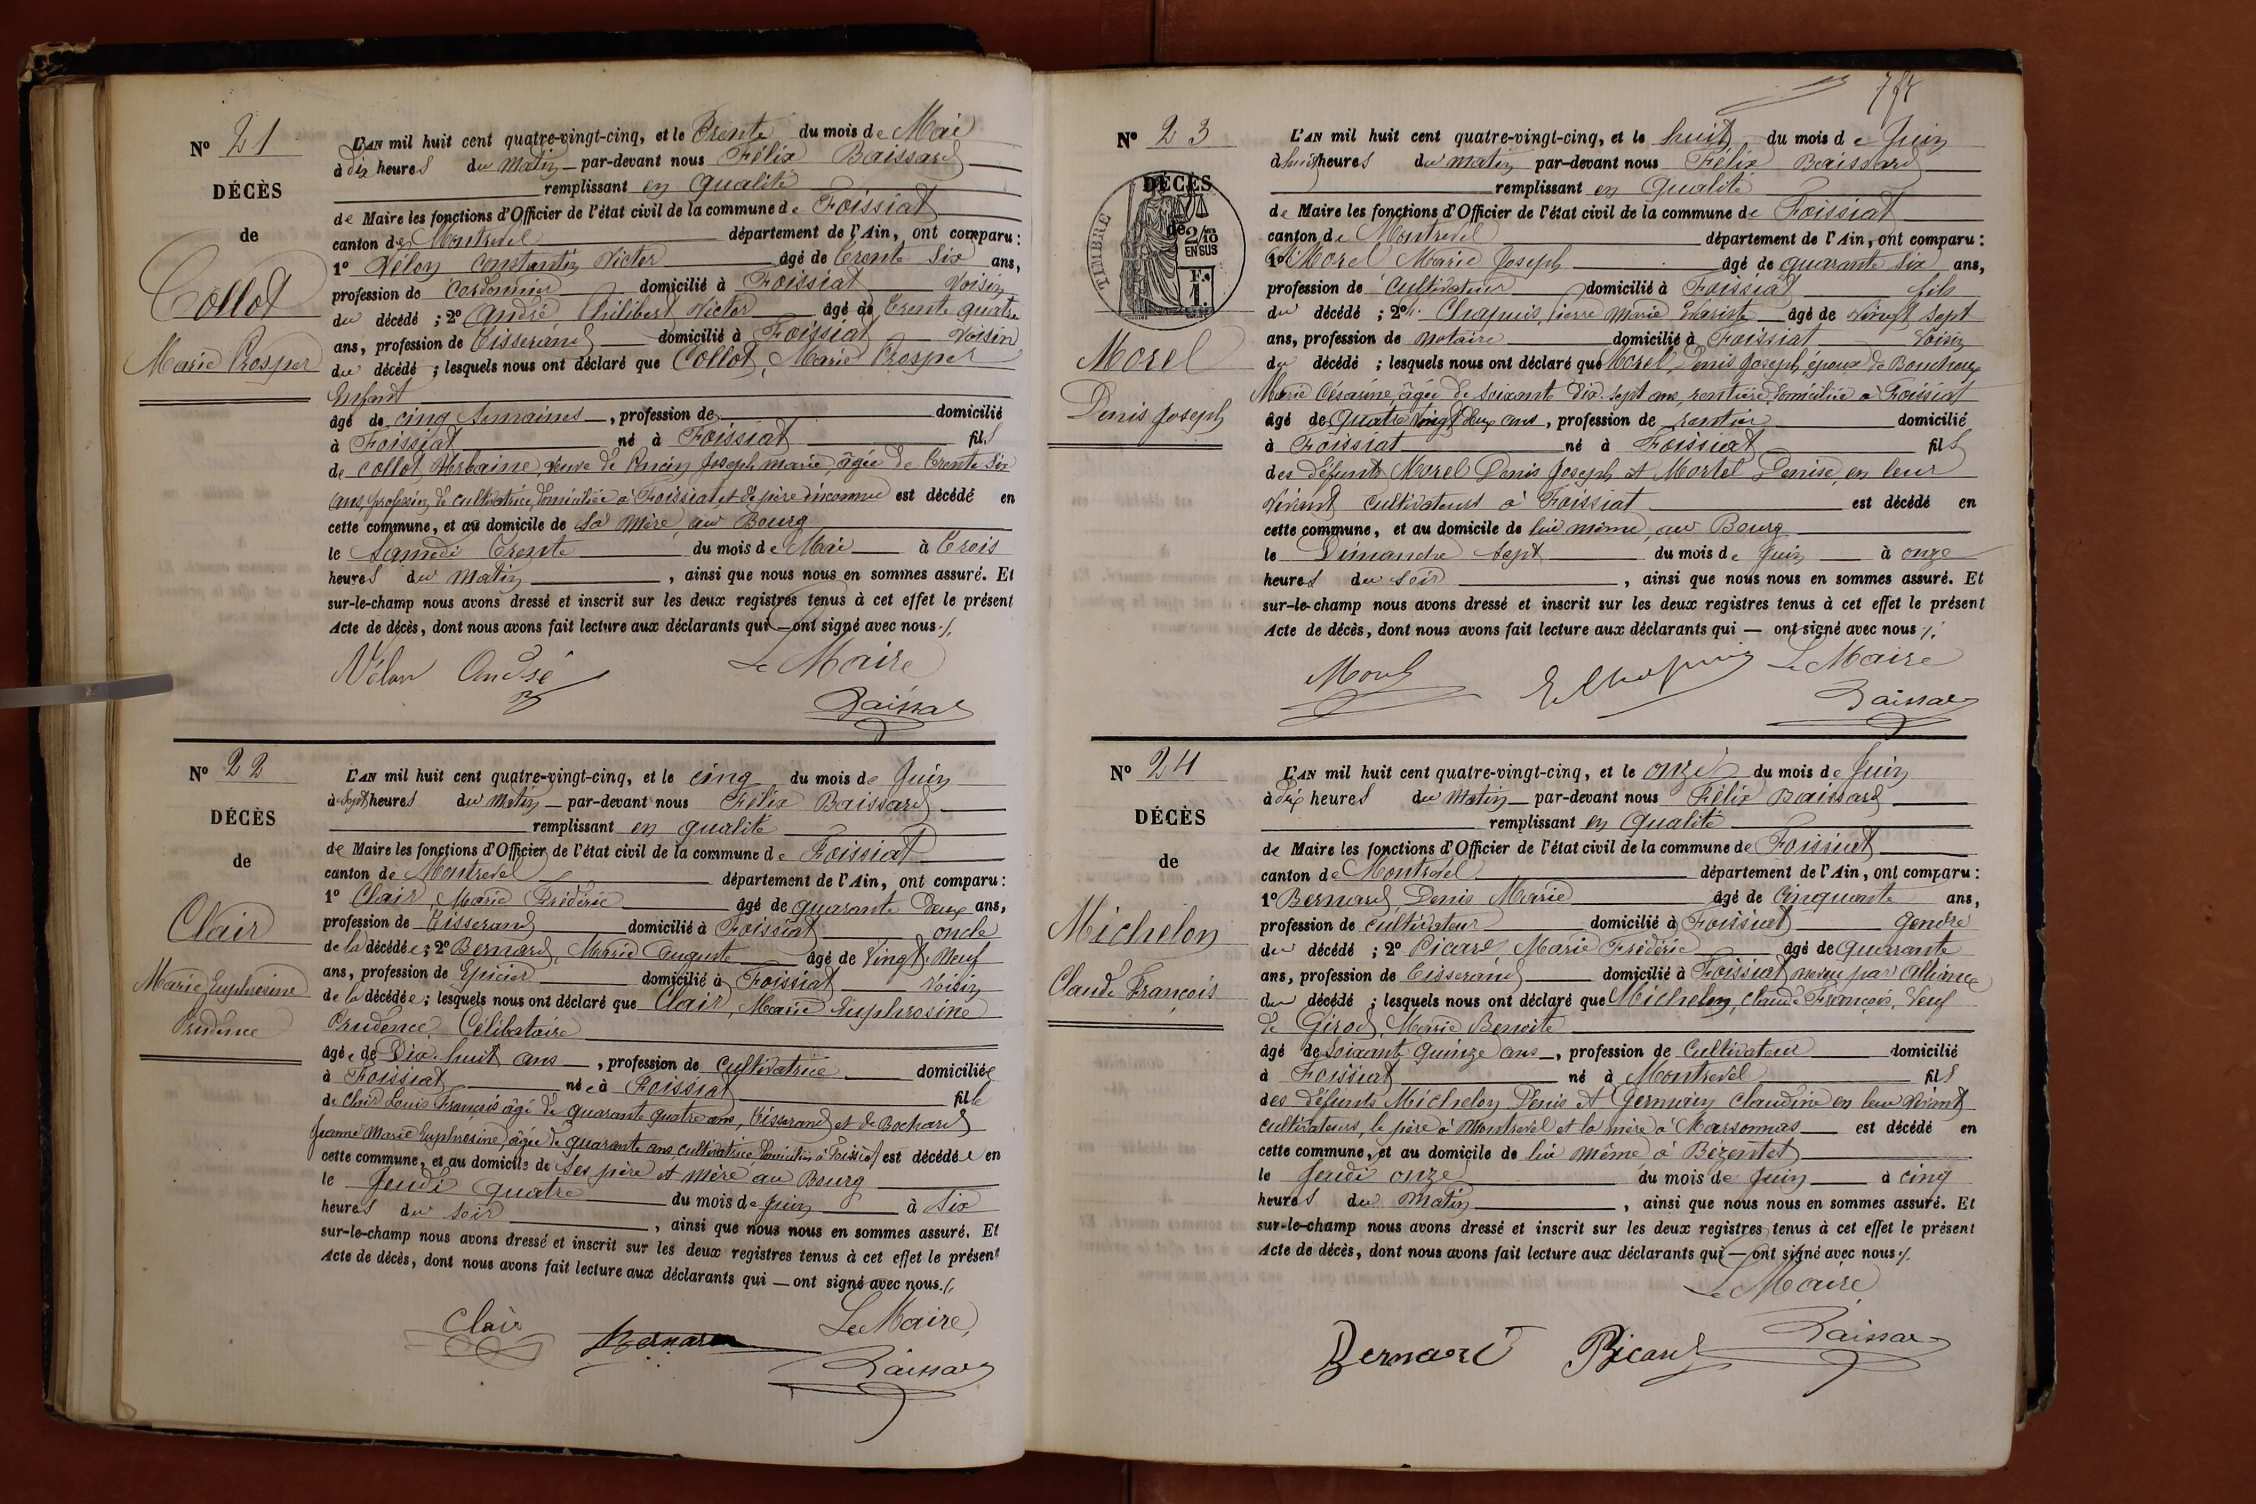 N° 21
DÉCÈS
de
Collot
Marie Prosper
L'AN mil huit cent quatre-vingt-cinq, et le Trente du mois de Mai
à dix heures du matin par-devant nous Félix Baissard
remplissant en qualité
de Maire les fonctions d'Officier de l'état civil de la commune de Foissiat
canton de Montrevel département de l'Ain, ont comparu :
1° Vélon Constantin Victor âgé de Trente Six ans,
profession de Cordonnier domicilié à Foissiat Voisin
du décédé ; 2° André Philibert Victor âgé de Trente quatre
ans, profession de Tisserand domicilié à Foissiat Voisin
du décédé ; lesquels nous ont déclaré que Collot, Marie Prosper
Enfant
âgé de cinq Semaines, profession de domicilié
à Foissiat né à Foissiat fils
de Collot Urbaine, veuve de Poncin Joseph marie, âgée de Trente Six
ans, profession de cultivatrice, domiciliée à Foissiat, et de père inconnu est décédé en
cette commune, et au domicile de Sa mère, au Bourg
le Samedi Trente du mois de Mai à Trois
heures du matin, ainsi que nous nous en sommes assuré. Et
sur-le-champ nous avons dressé et inscrit sur les deux registres tenus à cet effet le présent
Acte de décès, dont nous avons fait lecture aux déclarants qui — ont signé avec nous ./.
Vélon André Le Maire
Baissard
N° 22
DÉCÈS
de
Clair
Marie Euphrosine
Prudence
L'AN mil huit cent quatre-vingt-cinq, et le cinq du mois de Juin
à Sept heures du matin par-devant nous Félix Baissard
remplissant en qualité
de Maire les fonctions d'Officier de l'état civil de la commune de Foissiat
canton de Montrevel département de l'Ain, ont comparu :
1° Clair, Marie Frédéric âgé de quarante Deux ans,
profession de Tisserand domicilié à Foissiat oncle
de la décédée ; 2° Bernard, Marie Auguste âgé de Vingt Neuf
ans, profession de Epicier domicilié à Foissiat Voisin
de la décédée ; lesquels nous ont déclaré que Clair, Marie Euphrosine
Prudence Célibataire
âgée de Dix-huit ans, profession de Cultivatrice domiciliée
à Foissiat née à Foissiat fille
de Clair Louis François âgé de quarante quatre ans, Tisserand et de Bochard
Jeanne Marie Euphrosine, âgée de quarante ans, cultivatrice domiciliés à Foissiat est décédée en
cette commune, et au domicile de Ses père et mère au Bourg
le Jeudi quatre du mois de Juin à Six
heures du soir, ainsi que nous nous en sommes assuré. Et
sur-le-champ nous avons dressé et inscrit sur les deux registres tenus à cet effet le présent
Acte de décès, dont nous avons fait lecture aux déclarants qui — ont signé avec nous ./.
Clair Bernard Le Maire,
Baissard
N° 23
DÉCÈS
de
TIMBRE
2/10
EN SUS
Morel
Denis Joseph
L'AN mil huit cent quatre-vingt-cinq, et le huit du mois de Juin
à huit heures du matin par-devant nous Félix Baissard
remplissant en Qualité
de Maire les fonctions d'Officier de l'état civil de la commune de Foissiat
canton de Montrevel département de l'Ain, ont comparu :
1° Morel Marie Joseph âgé de quarante Six ans,
profession de Cultivateur domicilié à Foissiat fils
du décédé ; 2° Chapuis, Pierre Marie Evariste âgé de Vingt Sept
ans, profession de Notaire domicilié à Foissiat Voisin
du décédé ; lesquels nous ont déclaré que Morel, Denis Joseph, époux de Bouchoux
Marie Césarine, âgée de Soixante Dix-Sept ans, rentière, domiciliée à Foissiat
âgé de Quatre Vingt Deux ans, profession de rentier domicilié
à Foissiat né à Foissiat fils
des défunts Morel Denis Joseph et Mortel Denise, en leur
Vivant Cultivateurs à Foissiat est décédé en
cette commune, et au domicile de lui même, au Bourg
le Dimanche Sept du mois de Juin à onze
heures du soir, ainsi que nous nous en sommes assuré. Et
sur-le-champ nous avons dressé et inscrit sur les deux registres tenus à cet effet le présent
Acte de décès, dont nous avons fait lecture aux déclarants qui — ont signé avec nous ./.
Morel E Chapuis Le Maire
Baissard
N° 24
DÉCÈS
de
Michelon
Claude François
L'AN mil huit cent quatre-vingt-cinq, et le onze du mois de Juin
à dix heures du matin par-devant nous Félix Baissard
remplissant en Qualité
de Maire les fonctions d'Officier de l'état civil de la commune de Foissiat
canton de Montrevel département de l'Ain, ont comparu :
1° Bernard, Denis Marie âgé de Cinquante ans,
profession de Cultivateur domicilié à Foissiat Gendre
du décédé ; 2° Picard, Marie Frédéric âgé de Quarante
ans, profession de Tisserand domicilié à Foissiat neveu par Alliance
du décédé ; lesquels nous ont déclaré que Michelon, Claude François, Veuf
de Girod, Marie Benoite
âgé de Soixante Quinze ans, profession de Cultivateur domicilié
à Foissiat né à Montrevel fils
des défunts Michelon Denis et Germain Claudine en leur vivant
cultivateurs, le père à Montrevel et la mère à Marsonnas est décédé en
cette commune, et au domicile de lui même à Bézentet
le Jeudi onze du mois de Juin à cinq
heures du matin, ainsi que nous nous en sommes assuré. Et
sur-le-champ nous avons dressé et inscrit sur les deux registres tenus à cet effet le présent
Acte de décès, dont nous avons fait lecture aux déclarants qui — ont signé avec nous ./.
Le Maire
Bernard Picard Baissard